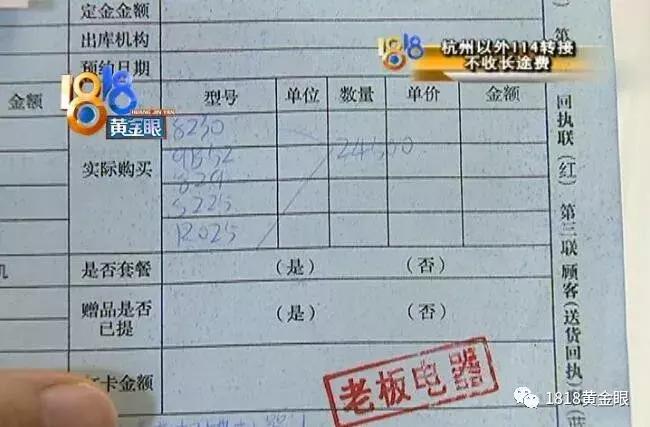 定金金额
1818
杭州以外114转接
不收长途费
出库机构
预约日期
1818
黄金眼
金额
型号 单位 数量 单价 金额
实际购买
8230
24500
8229
5225
R025
是否套餐 (是) (否)
赠品是否已提 (是) (否)
卡金额
老板电器
回执联(红) 第三联 顾客(送货回执)(蓝
1818黄金眼